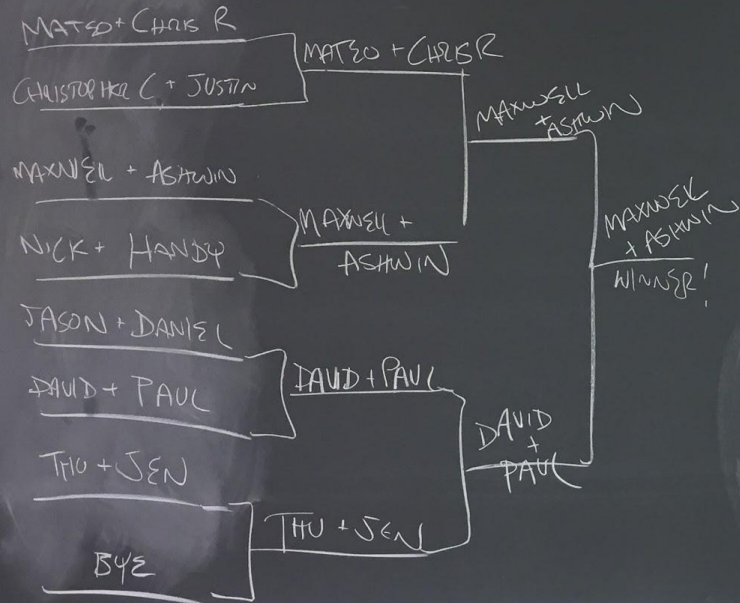 MATEO + CHRIS R
CHRISTOPHER C + JUSTIN
MAXWELL + ASHWIN
NICK + HANDY
JASON + DANIEL
DAVID + PAUL
THU + JEN
BYE
MATEO + CHRIS R
MAXWELL +
ASHWIN
DAVID + PAUL
THU + JEN
MAXWELL
+ ASHWIN
DAVID
+
PAUL
MAXWELL
+ ASHWIN
WINNER!